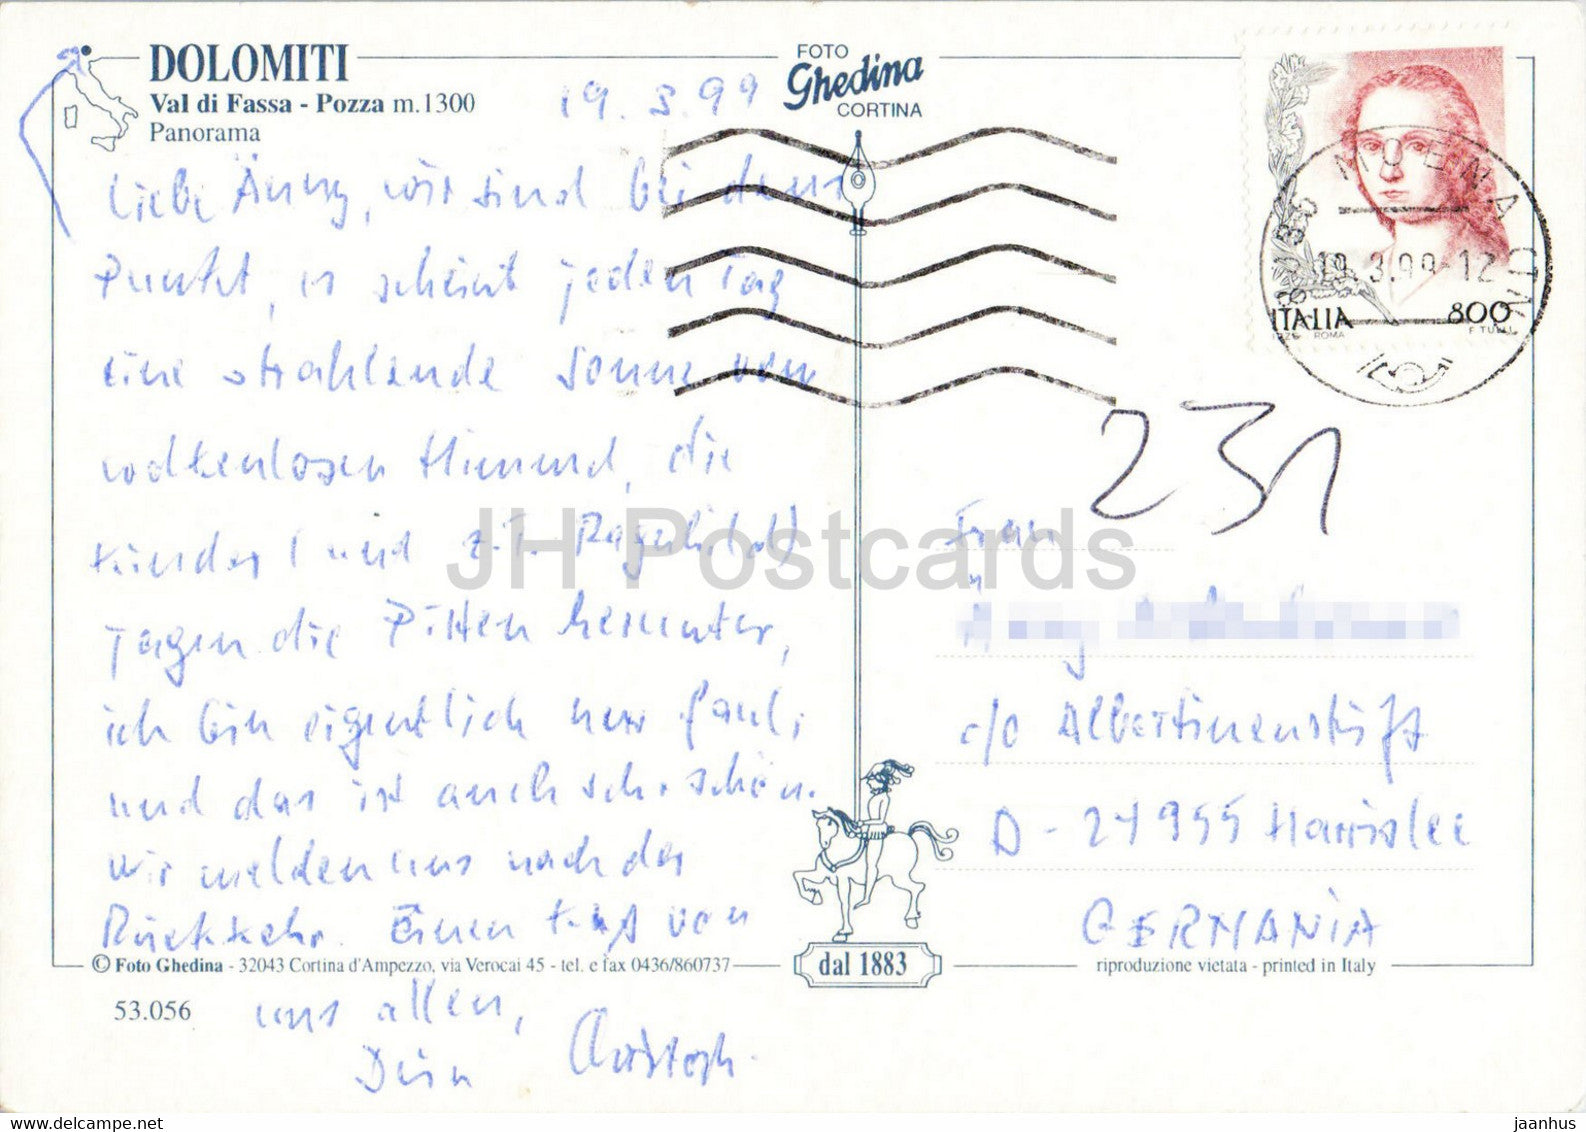 DOLOMITI
Val di Fassa - Pozza m.1300
Panorama
19.3.99
FOTO
Ghedina
CORTINA
Liebe Änny, wir sind bei dem
Punkt, es scheint jeden Tag
eine strahlende Sonne vom
wolkenlosen Himmel, die
Kinder (und z.T. Ragnhild)
jagen die Pisten herunter,
ich bin eigentlich nur faul,
und das ist auch sehr schön.
Wir melden uns nach der
Rückkehr. Einen Kuß von
uns allen,
Dein Christoph.
© Foto Ghedina - 32043 Cortina d'Ampezzo, via Verocai 45 - tel. e fax 0436/860737
53.056
dal 1883
MOENA (TN)
19.3.99-12
ITALIA 800
ROMA
231
Frau
c/o Albertinenstift
D - 24955 Harrislee
GERMANIA
riproduzione vietata - printed in Italy
JH Postcards
https://www.delcampe.net
jaanhus